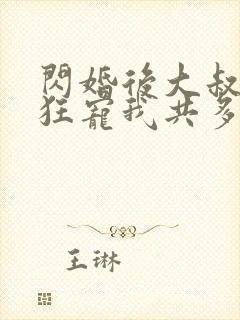 閃婚後大叔
狂寵我共多
王琳